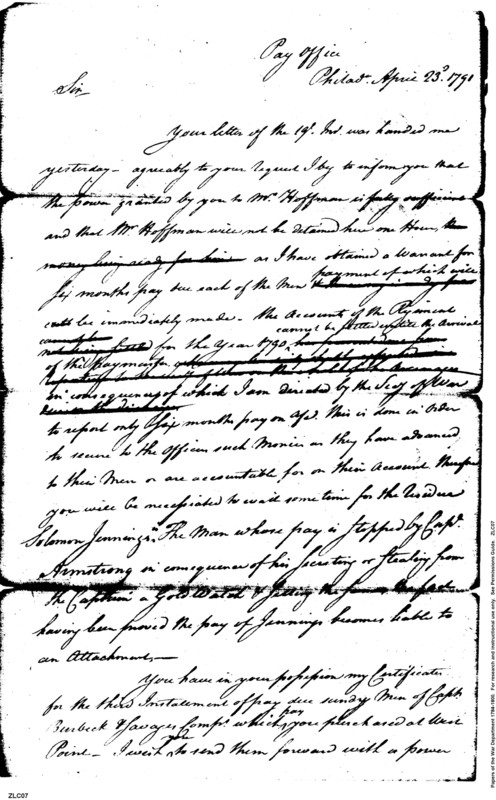 Pay Office
Philadª. April 23ᵈ. 1791
Sir
Your letter of the 19ᵗ. Inst. was handed me
yesterday – agreeably to your request I beg to inform you that
the power granted by you to Mʳ. Hoffman is fully sufficient
and that Mʳ. Hoffman will not be detained here one Hour, the
money being ready for him as I have obtained a Warrant for
payment of which will
Six months pay due each of the Men
be immediately made – the Account of the Regiment
cannot be settled until the Arrival
for the Year 1790
of the Paymaster
in consequence of which I am directed by the Secʸ of War
to report only Six months pay on acᵗ. This is done in Order
to secure to the Officers such Monies as they have advanced
to their Men or are accountable for on their Account therefore
you will be necessitated to wait some time for the residue
Solomon Jennings is The Man whose pay is stopped by Capᵗ.
Armstrong in consequence of his secreting or stealing from
the Captain a Gold Watch & selling the same the fact
having been proved the pay of Jennings becomes liable to
an Attachment –
You have in your possession my Certificates
for the third Instalment of pay due sundry Men of Capᵗˢ
Burbeck & Savages Compˢ. which pay you purchased at West
Point – I wish you to send them forward with a power
ZLC07
Papers of the War Department 1784-1800. For research and instructional use only. See Permissions Guide. ZLC07